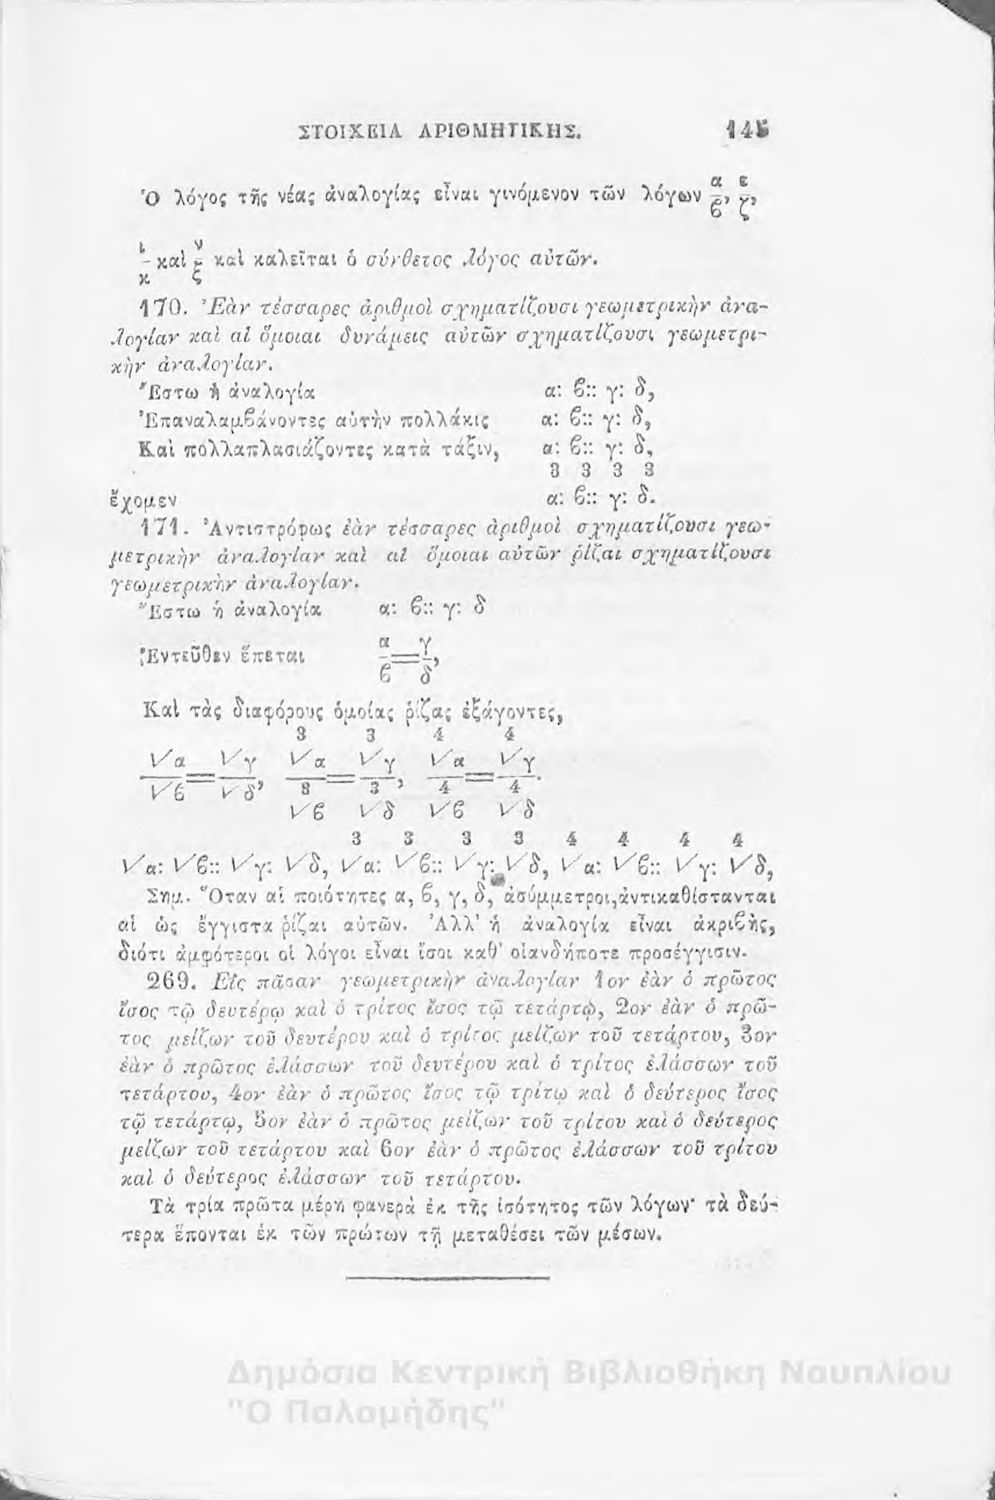 ΣΤΟΙΧΕΙΑ ΑΡΙΘΜΗΤΙΚΗΣ. 145
Ὁ λόγος τῆς νέας ἀναλογίας εἶναι γινόμενον τῶν λόγων α/β, ε/ζ,
ι/κ καὶ ν/ξ καὶ καλεῖται ὁ σύνθετος λόγος αὐτῶν.
170. Ἐὰν τέσσαρες ἀριθμοὶ σχηματίζουσι γεωμετρικὴν ἀνα-
λογίαν καὶ αἱ ὅμοιαι δυνάμεις αὐτῶν σχηματίζουσι γεωμετρι-
κὴν ἀναλογίαν.
Ἔστω ἡ ἀναλογία α: β:: γ: δ,
Ἐπαναλαμβάνοντες αὐτὴν πολλάκις α: β:: γ: δ,
Καὶ πολλαπλασιάζοντες κατὰ τάξιν, α: β:: γ: δ,
3 3 3 3
ἔχομεν α: β:: γ: δ.
171. Ἀντιστρόφως ἐὰν τέσσαρες ἀριθμοὶ σχηματίζουσι γεω-
μετρικὴν ἀναλογίαν καὶ αἱ ὅμοιαι αὐτῶν ῥίζαι σχηματίζουσι
γεωμετρικὴν ἀναλογίαν.
Ἔστω ἡ ἀναλογία α: β:: γ: δ
Ἐντεῦθεν ἕπεται α/β = γ/δ,
Καὶ τὰς διαφόρους ὁμοίας ῥίζας ἐξάγοντες,
3 3 4 4
√α √γ √α √γ √α √γ
— = —, — = —, — = —.
√β √δ 3 3 4 4
√β √δ √β √δ
3 3 3 3 4 4 4 4
√α: √β:: √γ: √δ, √α: √β:: √γ: √δ, √α: √β:: √γ: √δ,
Σημ. Ὅταν αἱ ποιότητες α, β, γ, δ, ἀσύμμετροι,ἀντικαθίστανται
αἱ ὡς ἔγγιστα ῥίζαι αὐτῶν. Ἀλλ' ἡ ἀναλογία εἶναι ἀκριβὴς,
διότι ἀμφότεροι οἱ λόγοι εἶναι ἴσοι καθ' οἱανδήποτε προσέγγισιν.
269. Εἰς πᾶσαν γεωμετρικὴν ἀναλογίαν 1ον ἐὰν ὁ πρῶτος
ἴσος τῷ δευτέρῳ καὶ ὁ τρίτος ἴσος τῷ τετάρτῳ, 2ον ἐὰν ὁ πρῶ-
τος μείζων τοῦ δευτέρου καὶ ὁ τρίτος μείζων τοῦ τετάρτου, 3ον
ἐὰν ὁ πρῶτος ἐλάσσων τοῦ δευτέρου καὶ ὁ τρίτος ἐλάσσων τοῦ
τετάρτου, 4ον ἐὰν ὁ πρῶτος ἴσος τῷ τρίτῳ καὶ ὁ δεύτερος ἴσος
τῷ τετάρτῳ, 5ον ἐὰν ὁ πρῶτος μείζων τοῦ τρίτου καὶ ὁ δεύτερος
μείζων τοῦ τετάρτου καὶ 6ον ἐὰν ὁ πρῶτος ἐλάσσων τοῦ τρίτου
καὶ ὁ δεύτερος ἐλάσσων τοῦ τετάρτου.
Τὰ τρία πρῶτα μέρη φανερὰ ἐκ τῆς ἰσότητος τῶν λόγων· τὰ δεύ-
τερα ἕπονται ἐκ τῶν πρώτων τῇ μεταθέσει τῶν μέσων.
Δημόσια Κεντρική Βιβλιοθήκη Ναυπλίου
"Ο Παλαμήδης"